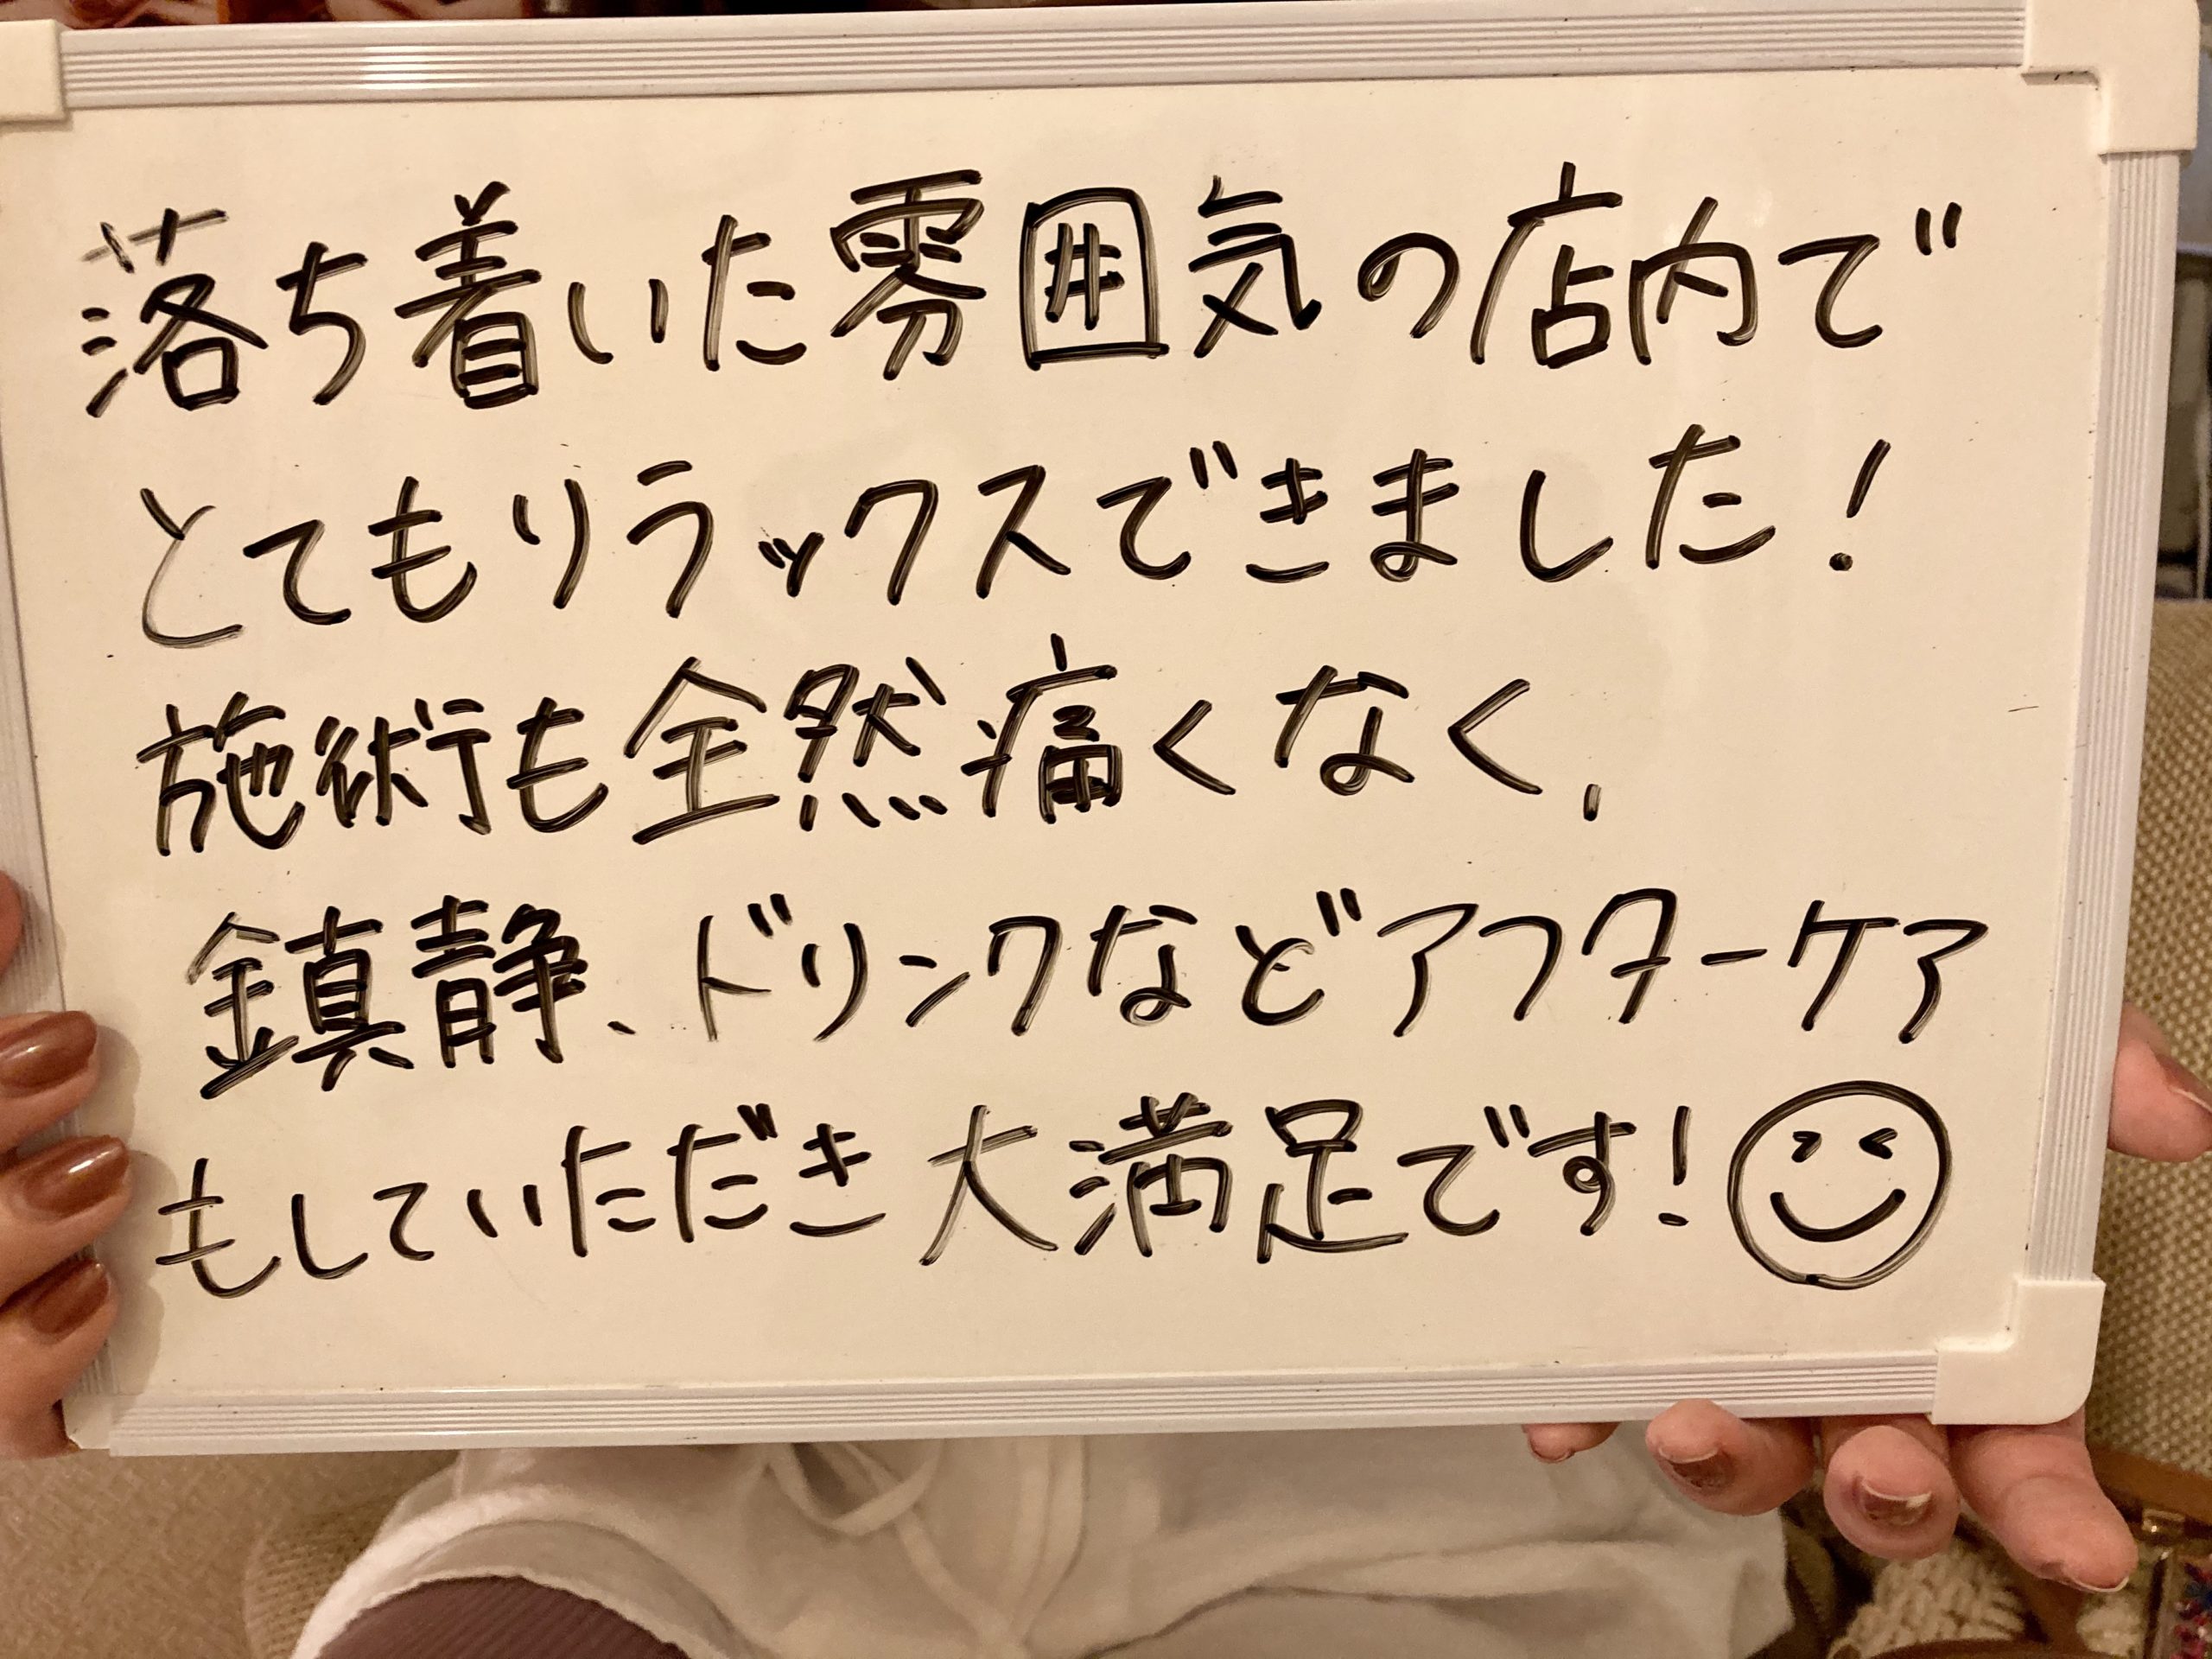 落ち着いた雰囲気の店内で
とてもリラックスできました!
施術も全然痛くなく、
鎮静、ドリンクなどアフターケア
もしていただき大満足です!